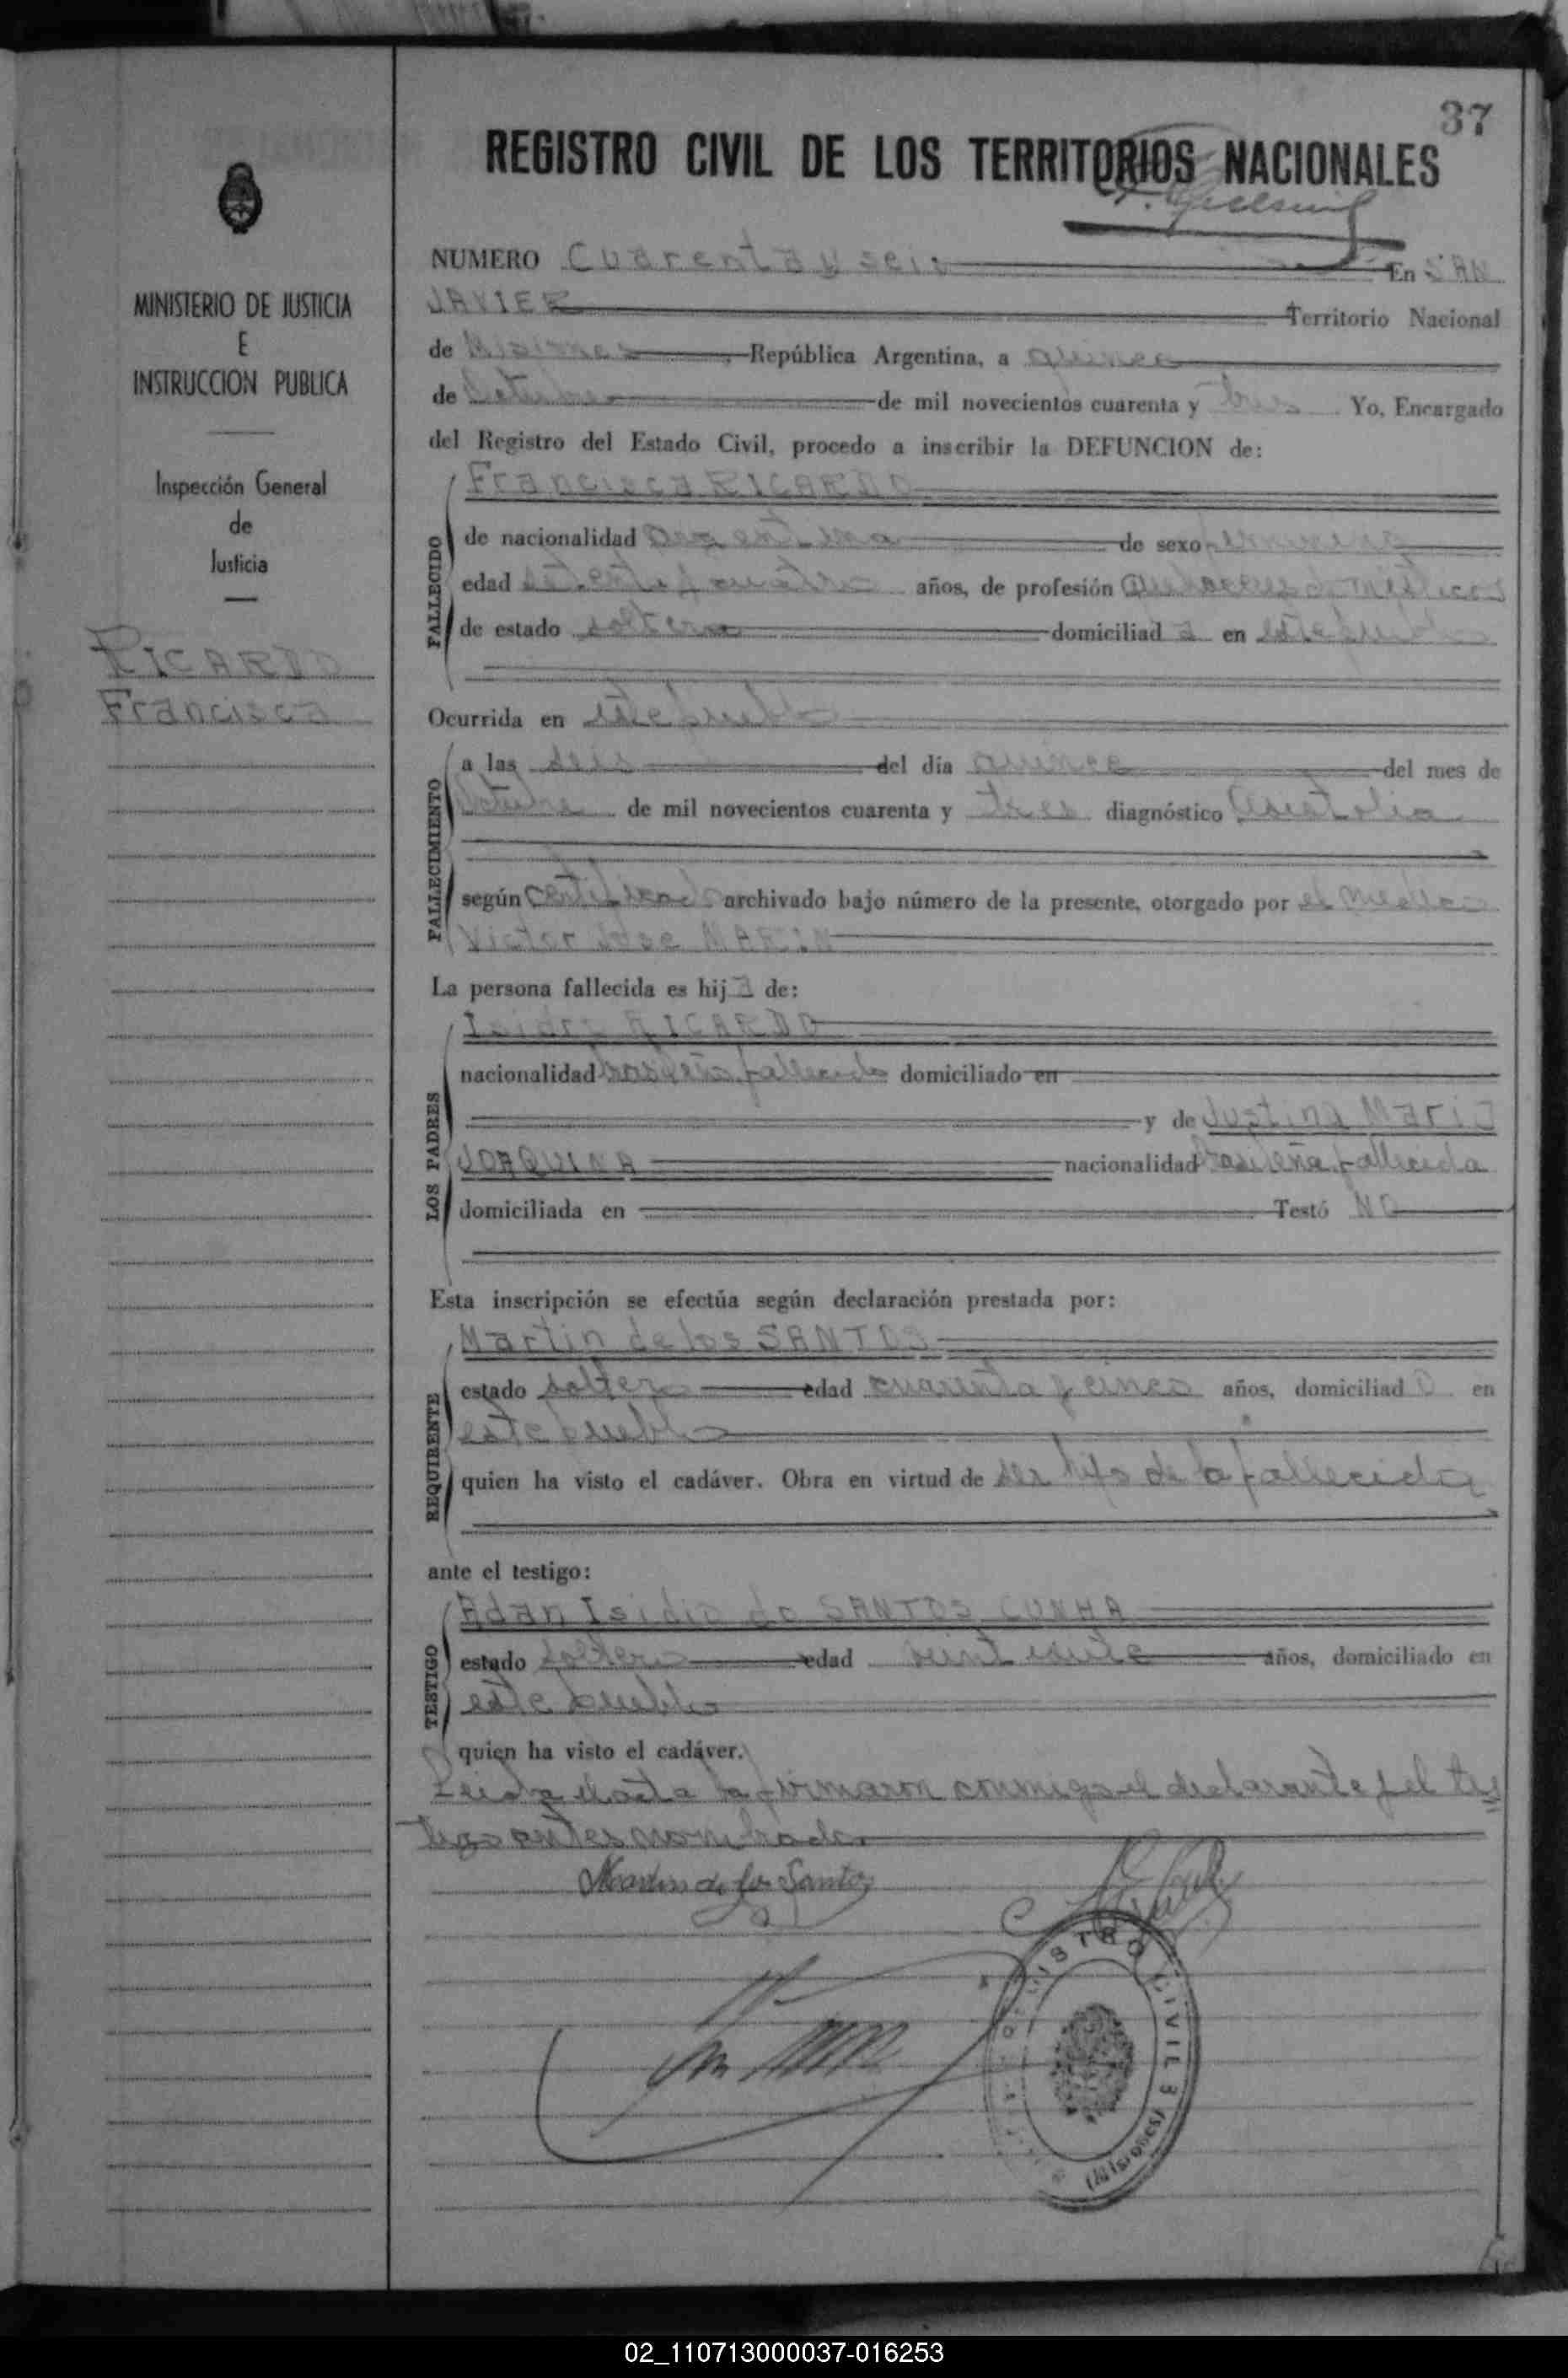 37
REGISTRO CIVIL DE LOS TERRITORIOS NACIONALES
MINISTERIO DE JUSTICIA
E
INSTRUCCION PUBLICA
Inspección General
de
Justicia
RICARDO
Francisca
NUMERO Cuarenta y seis En SAN
JAVIER Territorio Nacional
de Misiones, República Argentina, a quince
de Octubre de mil novecientos cuarenta y tres Yo, Encargado
del Registro del Estado Civil, procedo a inscribir la DEFUNCION de:
FALLECIDO
Francisca RICARDO
de nacionalidad argentina de sexo femenino
edad setenta y cuatro años, de profesión quehaceres domésticos
de estado soltera domiciliad a en este pueblo
Ocurrida en este pueblo
FALLECIMIENTO
a las seis del día quince del mes de
Octubre de mil novecientos cuarenta y tres diagnóstico asistolia
según certificado archivado bajo número de la presente, otorgado por el médico
Victor Jose MARIN
La persona fallecida es hij a de:
LOS PADRES
Isidro RICARDO
nacionalidad brasileño, fallecido domiciliado en
y de Justina Maria
JOAQUINA nacionalidad brasileña, fallecida
domiciliada en Testó NO
Esta inscripción se efectúa según declaración prestada por:
REQUIRENTE
Martin de los SANTOS
estado soltero edad cuarenta y cinco años, domiciliad o en
este pueblo
quien ha visto el cadáver. Obra en virtud de ser hijo de la fallecida
ante el testigo:
TESTIGO
Adan Isidio do SANTOS CUNHA
estado soltero edad años, domiciliado en
este pueblo
quien ha visto el cadáver.
Leida el acta la firmaron conmigo el declarante y el tes
tigo antes nombrado.
Martin de los Santos
REGISTRO CIVIL
(Misiones)
02_110713000037-016253